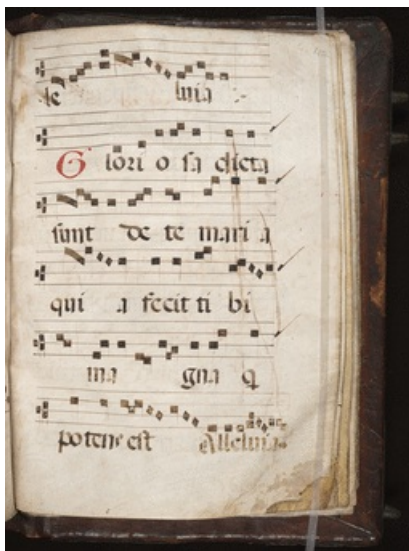 le luia
Glori o sa dicta
sunt de te mari a
qui a fecit ti bi
ma gna q
potens est Alleluia